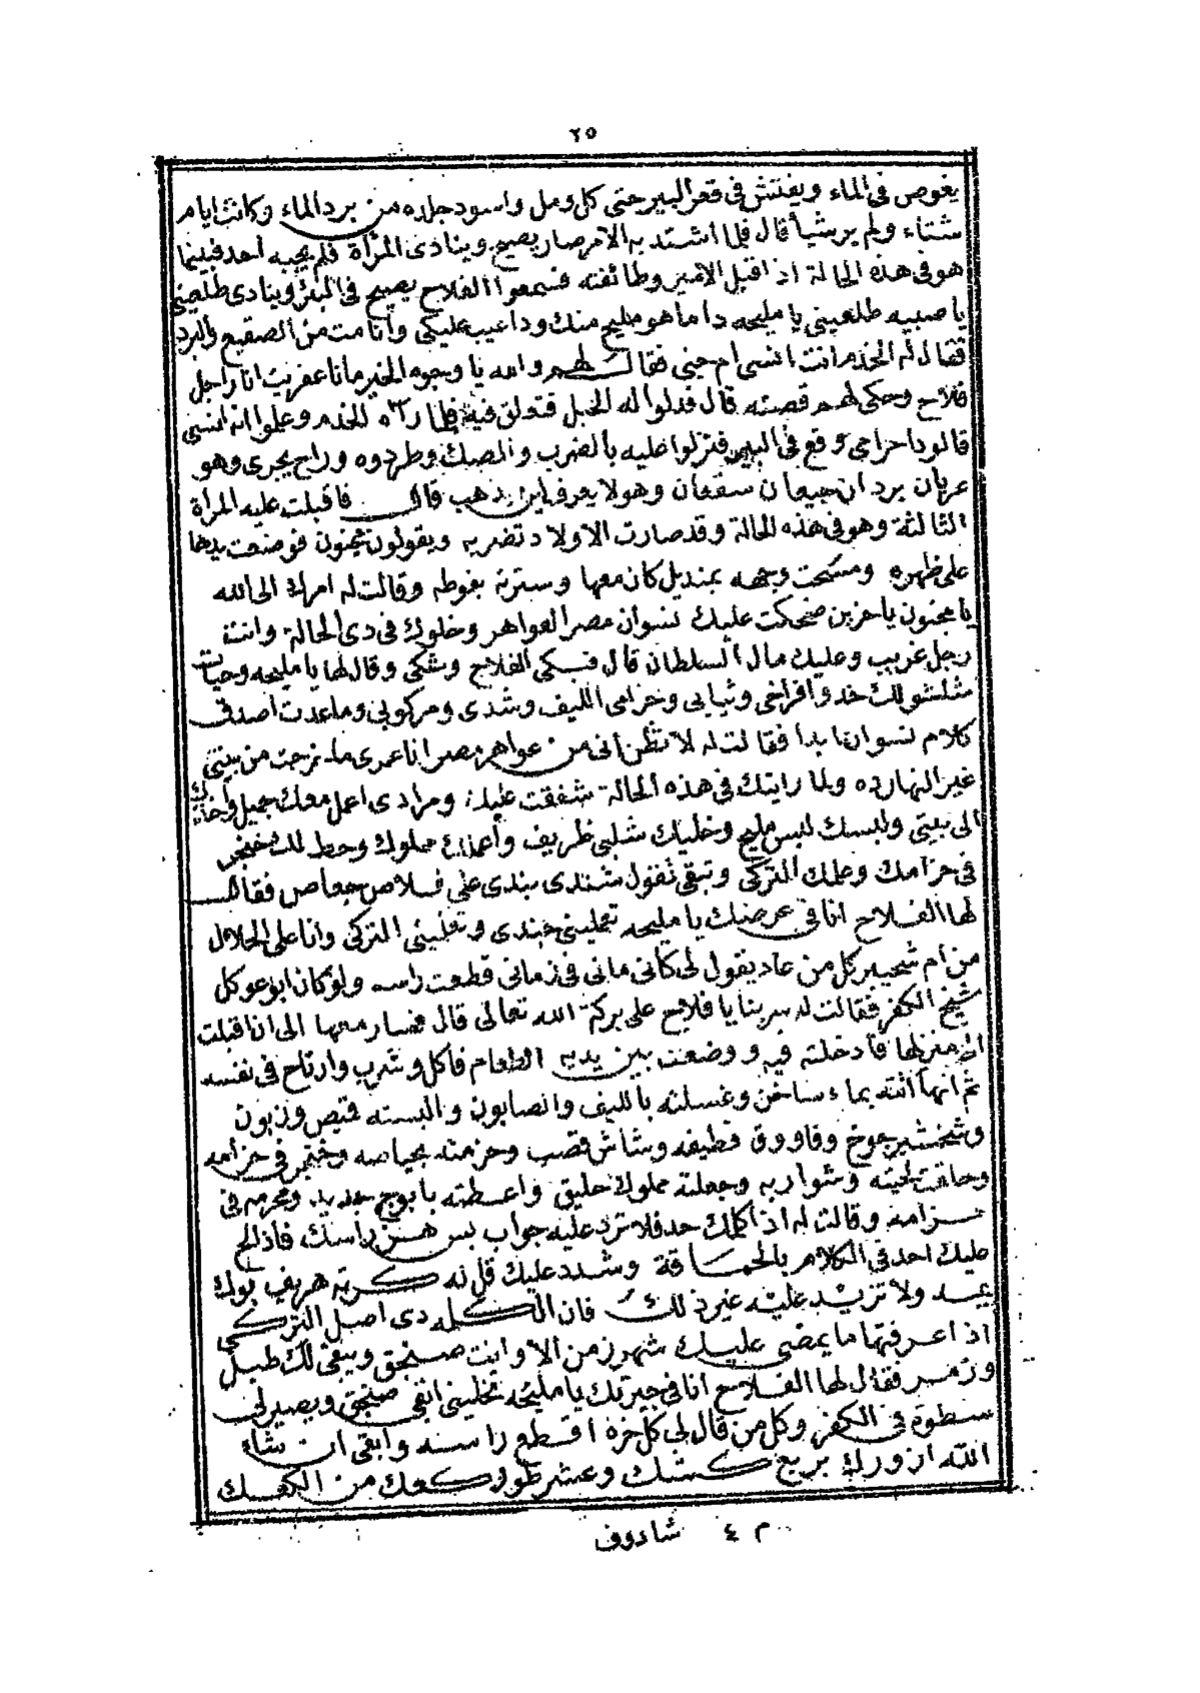 ٢٥
يغوص فى الماء ويفتش فى قعر البير حتى كل ومل واسود جلده من برد الماء وكانت ايام
شتاء ولم ير شيأ قال فلما اشتد به الامر صار يصيح وينادى المرأة فلم يجبه احد فبينما
هو فى هذه الحالة اذ اقبل الامير وطائفته فسمعوا الفلاح يصيح فى البئر وينادى طلعينى
يا صبيه طلعينى يا مليحه دا ما هو مليح منك ودا عيب عليكى وأنا مت من الصقيع والبرد
فقال له الخدم انت انسى ام جنى فقال لهم والله يا وجوه الخير مانا عفريت انا راجل
فلاح وحكى لهم قصته قال فدلوا له الحبل فتعلق فيه فلما رآه الخدم وعلموا انه انسى
قالو دا حرامى وقع فى البير فنزلوا عليه بالضرب والصك وطردوه وراح يجرى وهو
عريان بردان جيعان سقعان وهو لا يعرف اين يذهب قال فاقبلت عليه المرأة
الثالثة وهو فى هذه الحالة وقد صارت الاولاد تضربه ويقولون مجنون فوضعت يدها
على ظهره ومسحت وجهه بمنديل كان معها وسترته بفوطه وقالت له امرك الى الله
يا مجنون يا حزين ضحكت عليك نسوان مصر العواهر وخلوك فى دى الحالة وانت
رجل غريب وعليك مال السلطان قال فبكى الفلاح وشكى وقال لها يا مليحه وحيات
مثلشو لك خدو افراخى وثيابى وحزامى الليف وشدى ومركوبى وما عدت اصدق
كلام نسوان ابدا فقالت له لا تظن انى من عواهر مصر انا عمرى ما خرجت من بيتى
غير النهارده ولما رايتك فى هذه الحالة شفقت عليك ومرادى اعمل معك جميل وأخدك
الى بيتى والبسك لبس مليح وخليك شلبى ظريف وأعملك مملوك وحط لك خنجر
فى حزامك وعلمك التركى وتبقى تقول شندى بندى على فلاص جعاص فقال
لها الفلاح انا فى عرضك يا مليحه تعملينى جندى وتعلمينى التركى وانا على الحلال
من ام شحيبر كل من عاد يقول لى كانى مانى فى زمانى قطعت راسه ولو كان ابو عوكل
شيخ الكفر فقالت له سر بنا يا فلاح على بركة الله تعالى قال فسار معها الى ان اقبلت
الى منزلها فأدخلته فيه ووضعت بين يديه الطعام فاكل وشرب وارتاح فى نفسه
ثم انها أتته بماء ساخن وغسلته بالليف والصابون والبسته قميص وزبون
وشخشير جوخ وقاووق قطيفه وشاش قصب وحزمته بحياصه وخنجر فى حزامه
وحلقت لحيته وشواربه وجعلته مملوك حليق واعطته بابوج جديد ومحرمه فى
حزامه وقالت له اذا كلمك حد فلا ترد عليه جواب بس هز راسك فاذا لج
عليك احد فى الكلام بالحماقة وشدد عليك قل له كربته هريف بوك
يمه ولا تزيد عليه غير ذلك فان الكلمه دى اصل التركى
اذا عرفتها ما يمضى عليك شهر زمن الا وانت صنجق ويبقى لك طبل
وزمر فقال لها الفلاح انا فى جيرتك يا مليحه تخلينى ابقى صنجق ويصير لى
سطوه فى الكفر وكل من قال لى كل خره اقطع راسه وابقى ان شاء
الله ازورك بربع كشك وعشر طورو كعك من الكعك
م ٤ شادوف